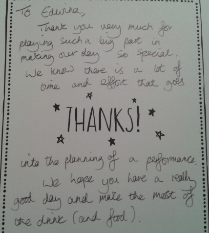 To Edwina,
Thank you very much for
playing such a big part in
making our day so special.
We know there is a lot of
time and effort that goes
THANKS!
into the planning of a performance
We hope you have a really
good day and make the most of
the drink (and food).